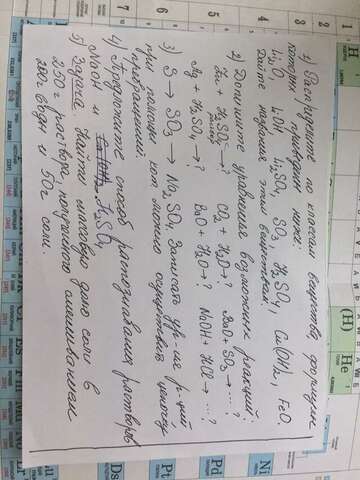 1) Распределите по классам вещества, формулы
которых приведены ниже:
Li₂O, LiOH, Li₂SO₄, SO₃, H₂SO₄, Cu(OH)₂, FeO.
Дайте названия этим веществам.
2) Допишите уравнения возможных реакций:
Zn + H₂SO₄ → ? CO₂ + H₂O → ? BaO + SO₃ → ...?
Ag + H₂SO₄ → ? BaO + H₂O → ? NaOH + HCl → ...?
3) S → SO₃ → Na₂SO₄. Записать ур-ия р-ций
при помощи кот. можно осуществить цепочку
превращений.
4) Предложите способ распознавания растворов
NaOH и H₂SO₄
5) Задача. Найти массовую долю соли в
250г раствора, полученного смешиванием
200г воды и 50г соли.
1
2
3
4
5
6
7
H
(H)
He
Ni
Pd
Pt
Ds